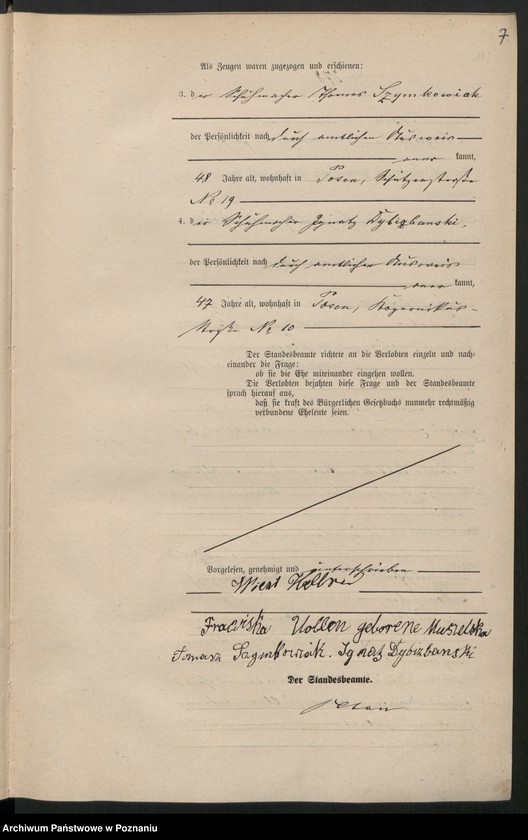 7
Als Zeugen waren zugezogen und erschienen:
3. der Schuhmacher Thomas Szymkowiak
der Persönlichkeit nach durch amtlichen Ausweis
aner kannt,
48 Jahre alt, wohnhaft in Posen, Schützenstraße
No 19
4. der Schuhmacher Ignatz Dybizbanski,
der Persönlichkeit nach durch amtlichen Ausweis
aner kannt,
47 Jahre alt, wohnhaft in Posen, Kopernikus-
straße No 10
Der Standesbeamte richtete an die Verlobten einzeln und nach-
einander die Frage:
ob sie die Ehe miteinander eingehen wollen.
Die Verlobten bejahten diese Frage und der Standesbeamte
sprach hierauf aus,
daß sie kraft des Bürgerlichen Gesetzbuchs nunmehr rechtmäßig
verbundene Eheleute seien.
Vorgelesen, genehmigt und unterschrieben
geborene
Tomasz Szymkowiak. Ignatz Dybizbanski
Der Standesbeamte.
Archiwum Państwowe w Poznaniu